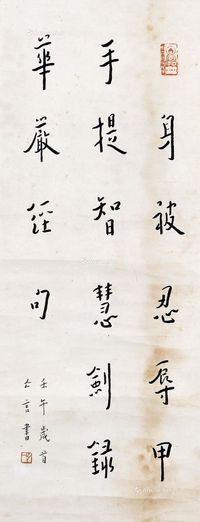 身被忍辱甲
手提智慧劍錄
華嚴經句
壬午歲首
亡言書